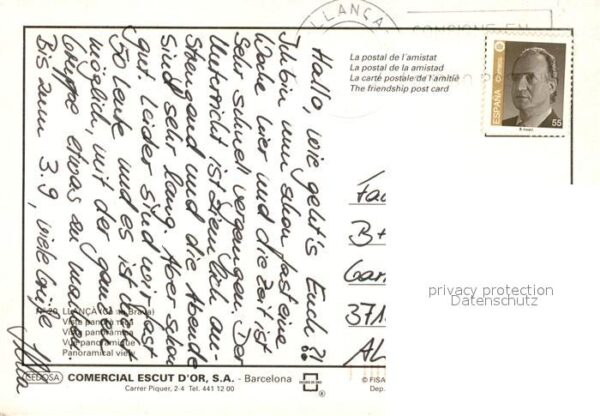 LLANÇA
CONSIGNE EN
La postal de l'amistat
La postal de la amistad
La carte postale de l'amitié
The friendship post card
ESPAÑA
CORREOS
55
Hallo, wie geht's Euch?!
Ich bin nun schon fast eine
Woche hier und die Zeit ist
sehr schnell vergangen. Der
Unterricht ist ziemlich an-
strengend und die Abende
sind sehr lang. Aber schon
gut. Leider sind wir fast
50 Leute und es ist nicht
möglich, mit der ganzen
Gruppe etwas zu machen.
Bis zum 3.9, viele Grüße
B+
371
AL
privacy protection
Datenschutz
Nº 29 LLANÇÀ (Costa Brava)
Vista panoràmica
Vista panorámica
Vue panoramique
Panoramical view
CEDOSA
COMERCIAL ESCUT D'OR, S.A. - Barcelona
Carrer Piquer, 2-4 Tel. 441 12 00
© FISA
Dep.